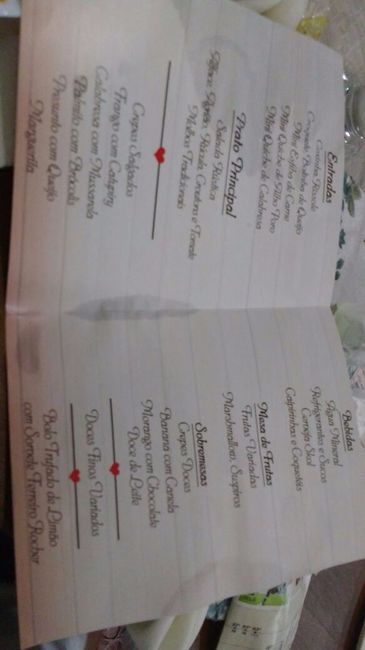 Entradas
Coxinha, Rissole
Croquete, Bolinha de Queijo
Mini Esfiha de Carne
Mini Quiche de Alho Poró
Mini Quiche de Calabresa
Prato Principal
Salada Rústica
Alface, Agrião, Rúcula, Croutons e Tomate
Molhos Tradicionais
Crepes Salgados
Frango com Catupiry
Calabresa com Mussarela
Palmito com Brócolis
Presunto com Queijo
Marguerita
Bebidas
Água Mineral
Refrigerantes e Sucos
Cerveja Skol
Caipirinhas e Coquetéis
Mesa de Frutas
Frutas Variadas
Marshmallow, Suspiros
Sobremesas
Crepes Doces
Banana com Canela
Morango com Chocolate
Doce de Leite
Doces Finos Variados
Bolo Trufado de Limão
com Sorvete Ferrero Rocher